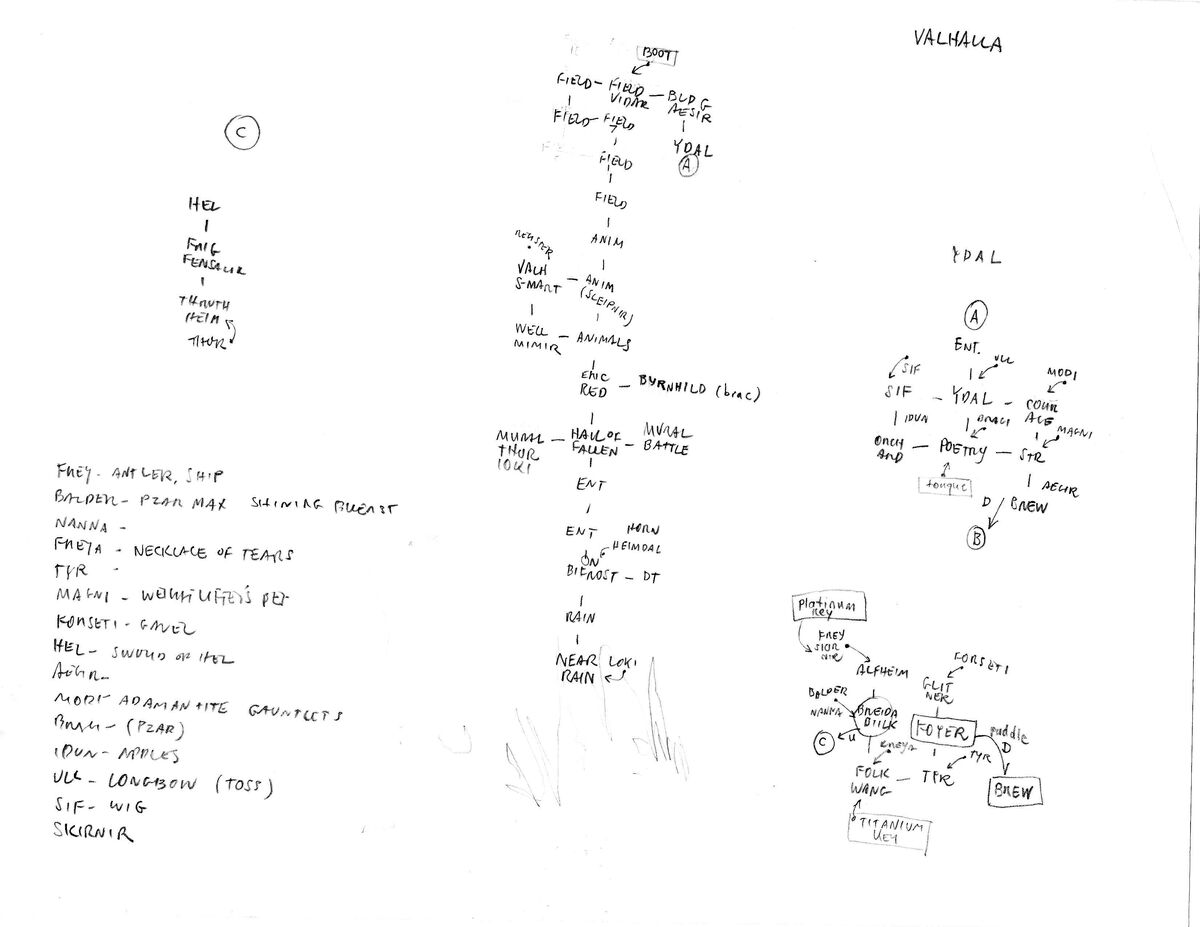 VALHALLA
BOOT
FIELD - FIELD VIDAR - BLDG AESIR
FIELD - FIELD
YDAL
A
FIELD
FIELD
ANIM
REGISTER
VALH S-MART - ANIM (SLEIPNIR)
WELL MIMIR - ANIMALS
ERIC RED - BYRNHILD (brac)
MURAL THOR LOKI - HALL OF FALLEN - MURAL BATTLE
ENT
ENT
HORN
HEIMDAL
ON BIFROST - DT
RAIN
NEAR RAIN
LOKI
C
HEL
FRIG FENSALIR
THRUTH HEIM
THOR
FREY - ANTLER, SHIP
BALDER - PZAR MAX SHINING BREAST
NANNA -
FREYA - NECKLACE OF TEARS
TYR -
MAGNI - WEIGHTLIFTER'S BELT
FORSETI - GAVEL
HEL - SWORD OF HEL
AEGIR -
MODI - ADAMANTITE GAUNTLETS
BRAGI - (PZAR)
IDUN - APPLES
ULL - LONGBOW (TOSS)
SIF - WIG
SKIRNIR
YDAL
A
ENT.
ULL
SIF
MODI
SIF - YDAL - COUR AGE
IDUN
BRAGI
MAGNI
ORCH ARD - POETRY - STR
tongue
AEGIR
D
BREW
B
Platinum Key
FREY
SKIR NIR
ALFHEIM
FORSETI
GLIT NER
BALDER
NANNA
BREIDA BLIK
FOYER
puddle
D
C
U
FREYA
TYR
FOLK WANG - TYR
BREW
TITANIUM KEY